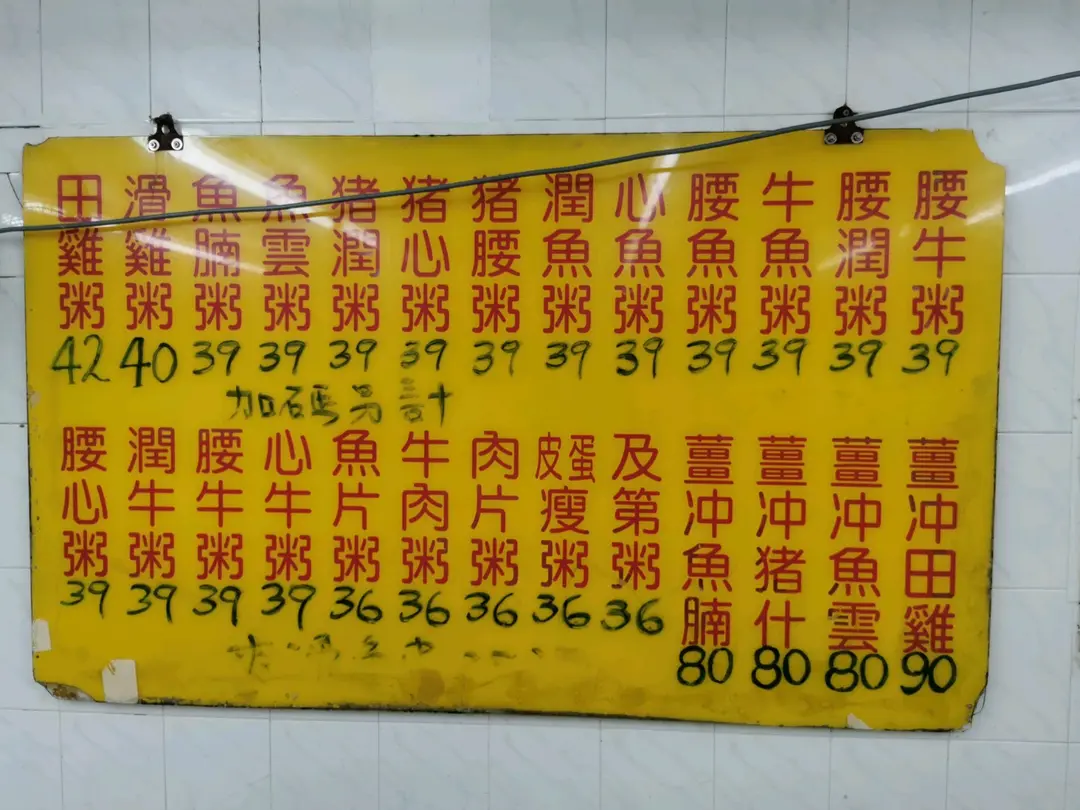 田雞粥 42
滑雞粥 40
魚腩粥 39
魚雲粥 39
猪潤粥 39
猪心粥 39
猪腰粥 39
潤魚粥 39
心魚粥 39
腰魚粥 39
牛魚粥 39
腰潤粥 39
腰牛粥 39
加碼另計
腰心粥 39
潤牛粥 39
腰牛粥 39
心牛粥 39
魚片粥 36
牛肉粥 36
肉片粥 36
皮蛋瘦粥 36
及第粥 36
薑冲魚腩 80
薑冲猪什 80
薑冲魚雲 80
薑冲田雞 90